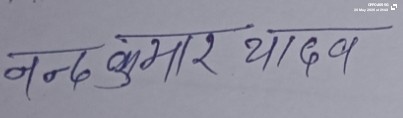 नन्द कुमार यादव